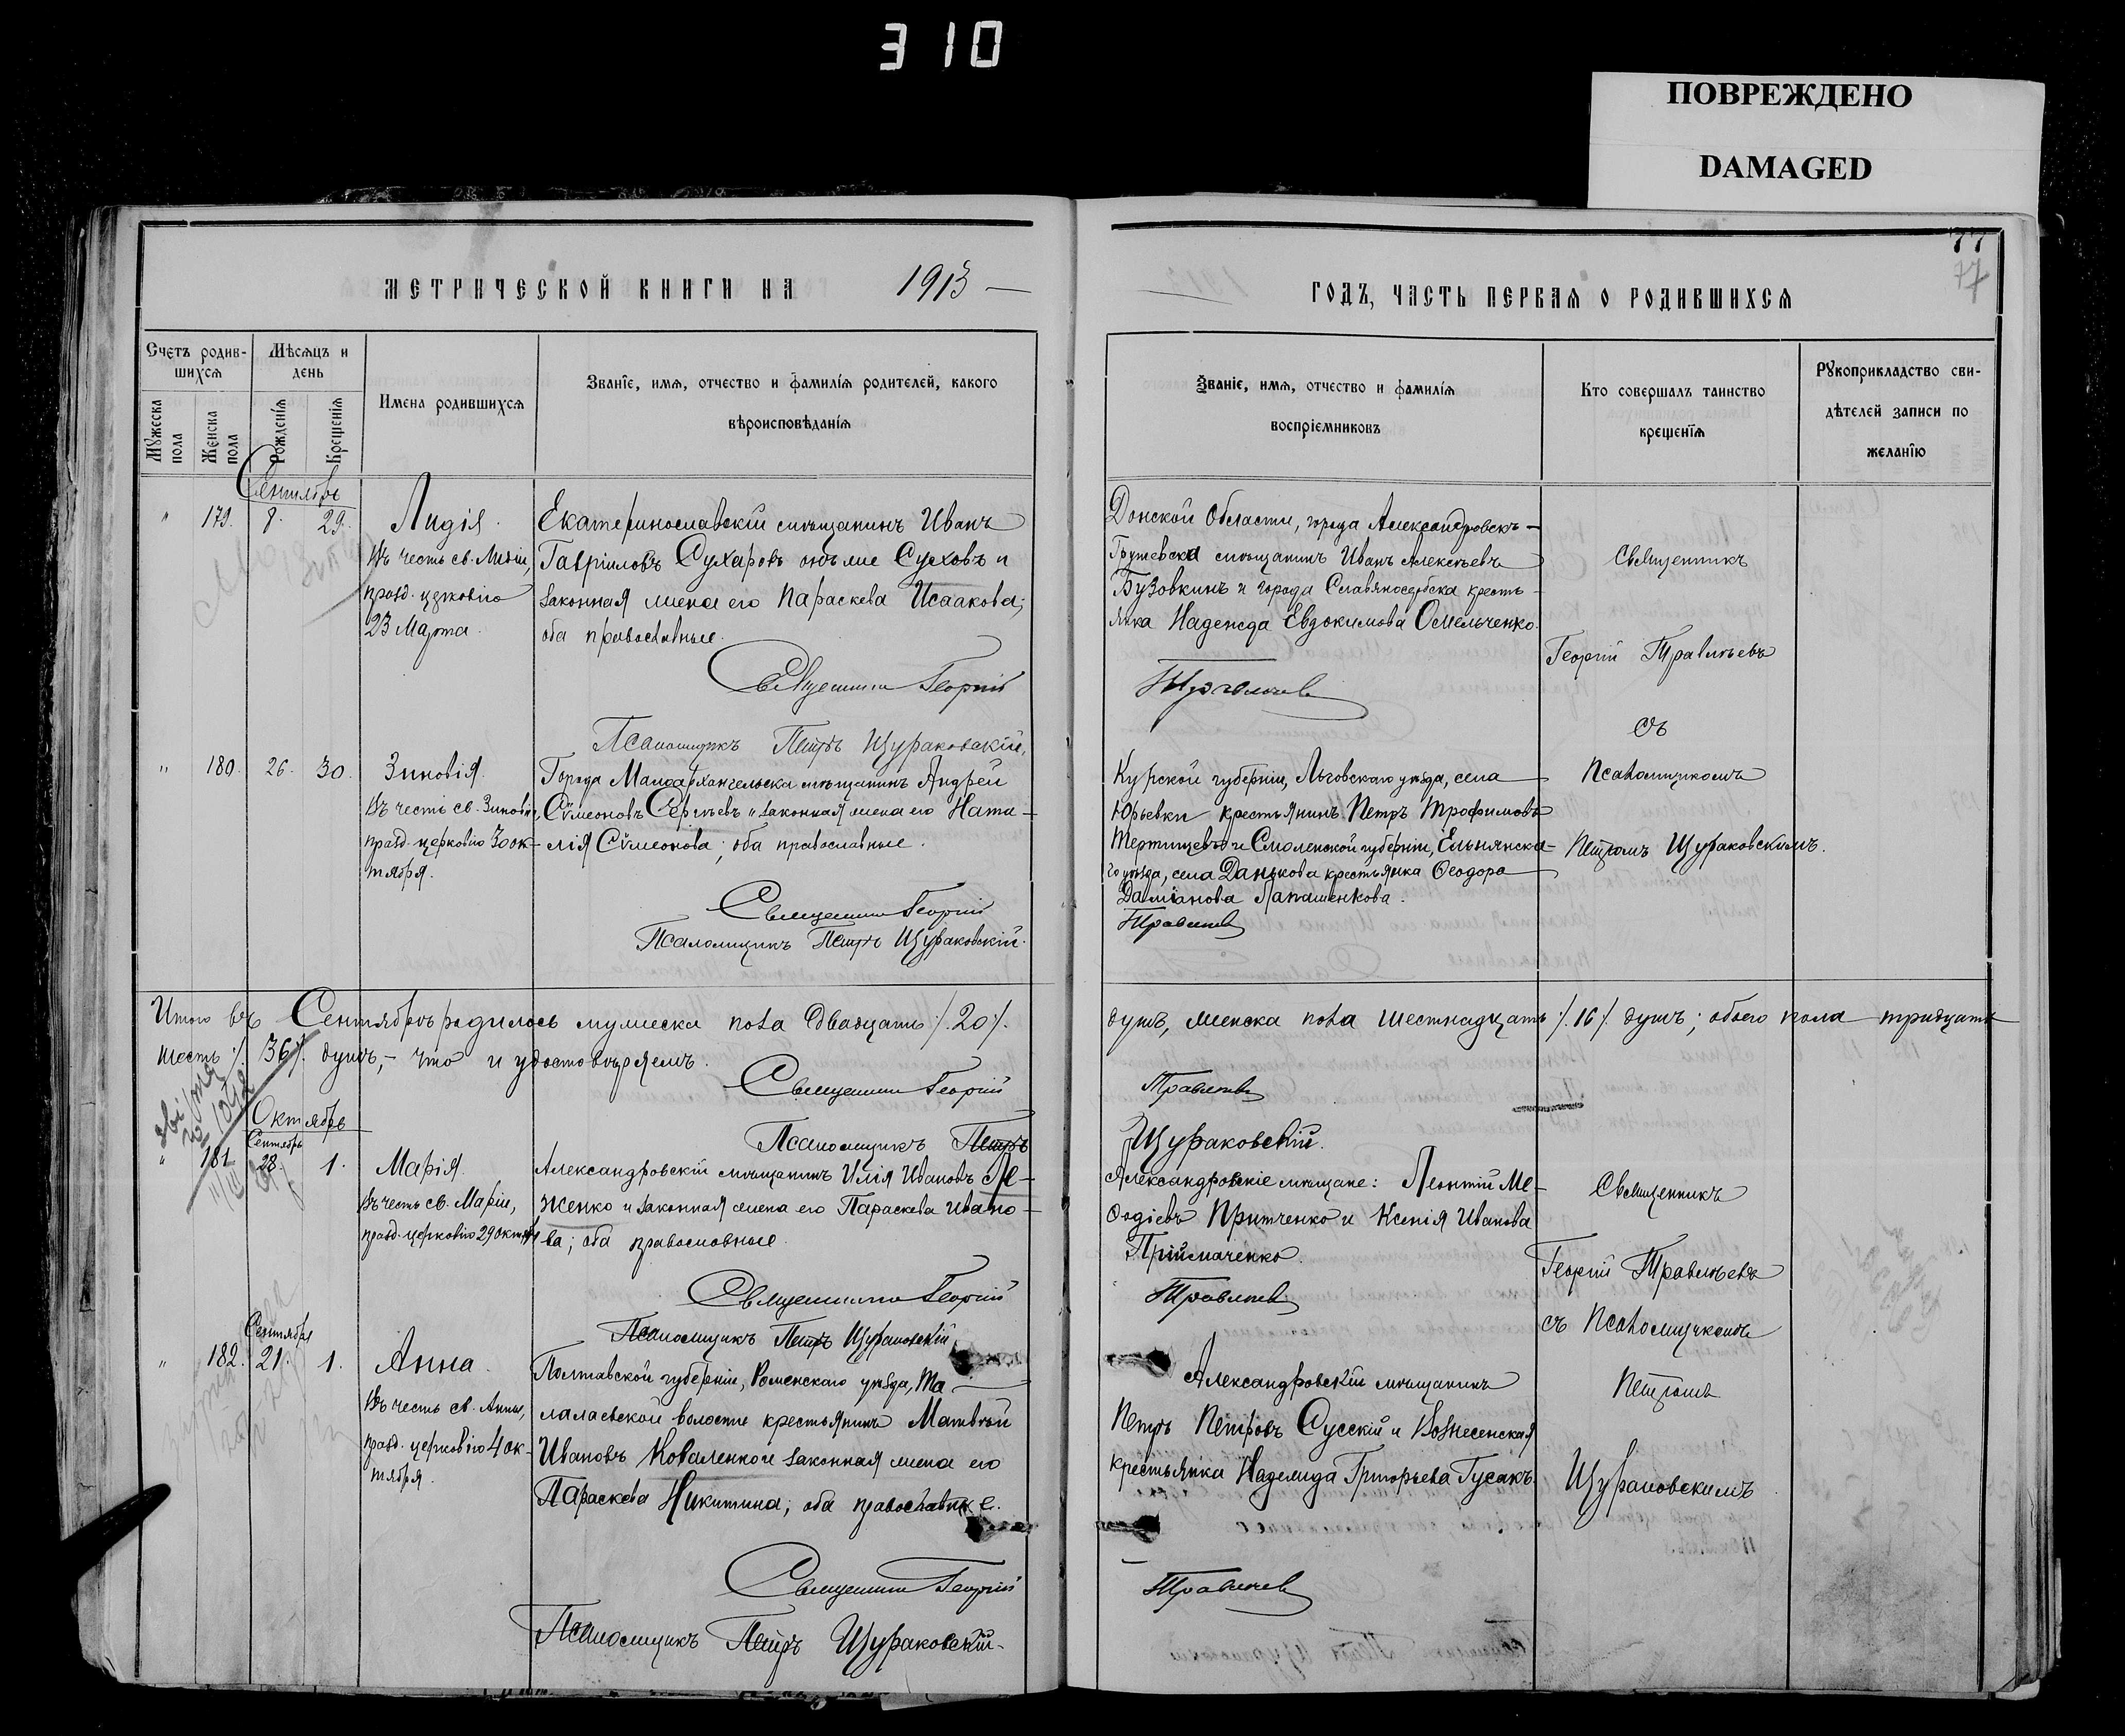 310
ПОВРЕЖДЕНО
DAMAGED
77
77
МЕТРИЧЕСКОЙ КНИГИ НА 1913
ГОДЪ, ЧАСТЬ ПЕРВАЯ О РОДИВШИХСЯ
Счетъ родив-
шихся
Мѣсяцъ и
день
Мужеска
пола
Женска
пола
Рожденія
Крещенія
Имена родившихся
Званіе, имя, отчество и фамилія родителей, какого
вѣроисповѣданія
Званіе, имя, отчество и фамилія
воспріемниковъ
Кто совершалъ таинство
крещенія
Рукоприкладство сви-
дѣтелей записи по
желанію
Сентябрь
" 179. 8. 29.
Лидія.
Въ честь св. Лидіи,
празд. церковію
23 Марта.
Екатеринославскій мѣщанинъ Иванъ
Гавріиловъ Сухаровъ онъ же Суховъ и
законная жена его Параскева Исаакова;
оба православные.
Священникъ Георгій
Псаломщикъ Петръ Щураковскій.
Донской Области, города Александровскъ-
Грушевска мѣщанинъ Иванъ Алексѣевъ
Бузовкинъ и города Славяносербска кресть-
янка Надежда Евдокимова Омельченко.
Травлѣевъ
Священникъ
Георгій Травлѣевъ
съ
Псаломщикомъ
Петромъ Щураковскимъ.
" 180. 26. 30.
Зиновія.
Въ честь св. Зиновіи,
празд. церковію 30 ок-
тября.
Города Малоархангельска мѣщанинъ Андрей
Сѵмеоновъ Сергѣевъ и законная жена его Ната-
лія Сѵмеонова; оба православные.
Священникъ Георгій
Псаломщикъ Петръ Щураковскій.
Курской губерніи, Льговскаго уѣзда, села
Юрьевки крестьянинъ Петръ Трофимовъ
Тертищевъ и Смоленской губерніи, Ельнинска-
го уѣзда, села Данькова крестьянка Ѳеодора
Даміанова Лапашенкова.
Травлѣевъ
Итого въ Сентябрѣ родилось мужеска пола двадцать /.20/.
душъ, женска пола шестнадцать /.16/. душъ; обоего пола тридцать
шесть /.36/. душъ,- что и удостовѣряемъ.
Священникъ Георгій
Травлѣевъ
Псаломщикъ Петръ
Щураковскій.
Октябрь
Сентябрь
" 181. 28. 1.
Марія.
Въ честь св. Маріи,
празд. церковію 29 октяб
Александровскій мѣщанинъ Илія Ивановъ Ле-
женко и законная жена его Параскева Ивано-
ва; оба православные.
Священникъ Георгій
Псаломщикъ Петръ Щураковскій.
Александровскіе мѣщане: Леонтій Ме-
ѳодіевъ Притченко и Ксенія Иванова
Пріймаченко.
Травлѣевъ
Священникъ
Георгій Травлѣевъ
съ Псаломщикомъ
Петромъ
Щураковскимъ
Сентября
" 182. 21. 1.
Анна.
Въ честь св. Анны,
празд. церковію 4 ок-
тября.
Полтавской губерніи, Роменскаго уѣзда, Та-
лалаевской волости крестьянинъ Матвѣй
Ивановъ Коваленко и законная жена его
Параскева Никитина; оба православные.
Священникъ Георгій
Псаломщикъ Петръ Щураковскій.
Александровскій мѣщанинъ
Петръ Петровъ Сусскій и Вознесенская
крестьянка Надежда Григорьева Гусакъ.
Травлѣевъ